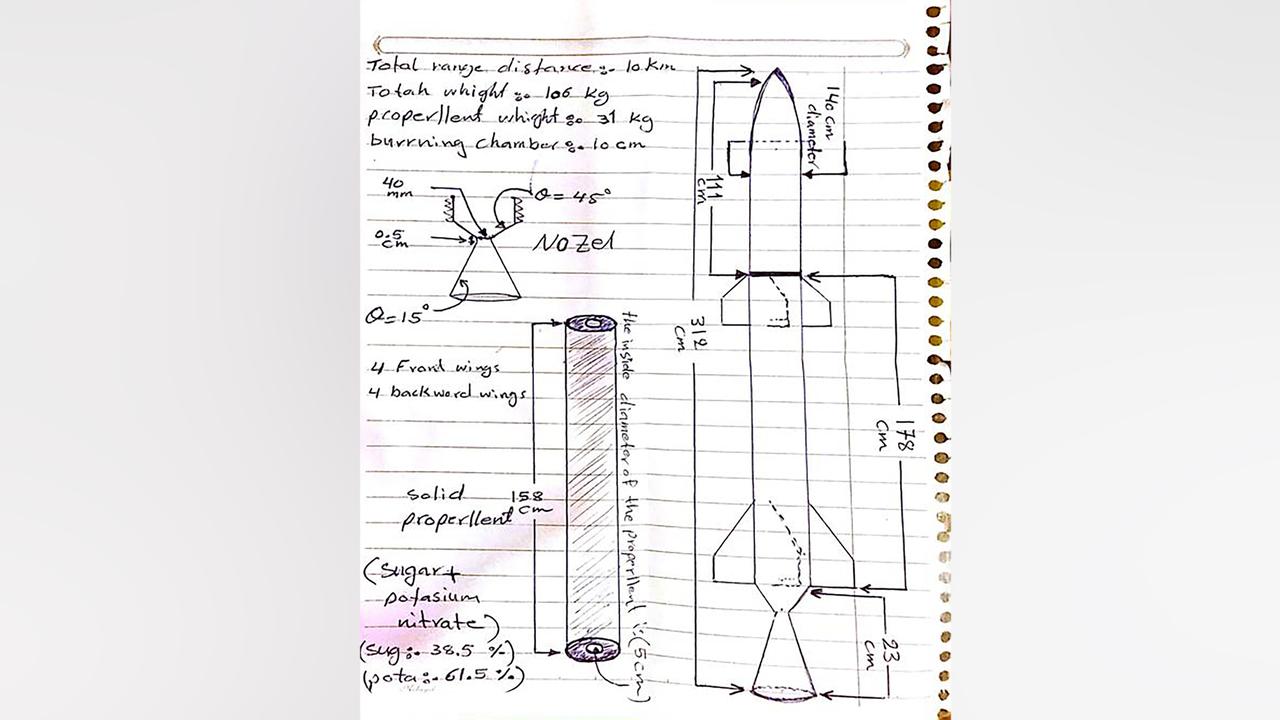 Total range distance :- 10 km
Totah whight :- 106 kg
properllent whight :- 31 kg
burrning chamber :- 10 cm
40 mm
θ = 45°
0.5 cm
NoZel
θ = 15°
4 Front wings
4 backword wings
solid properllent
158 cm
(sugar +
potasium
nitrate)
(sug :- 38.5 %)
(pota :- 61.5 %)
the inside diameter of the properllent is (5 cm)
140 cm diameter
111 cm
312 cm
178 cm
23 cm